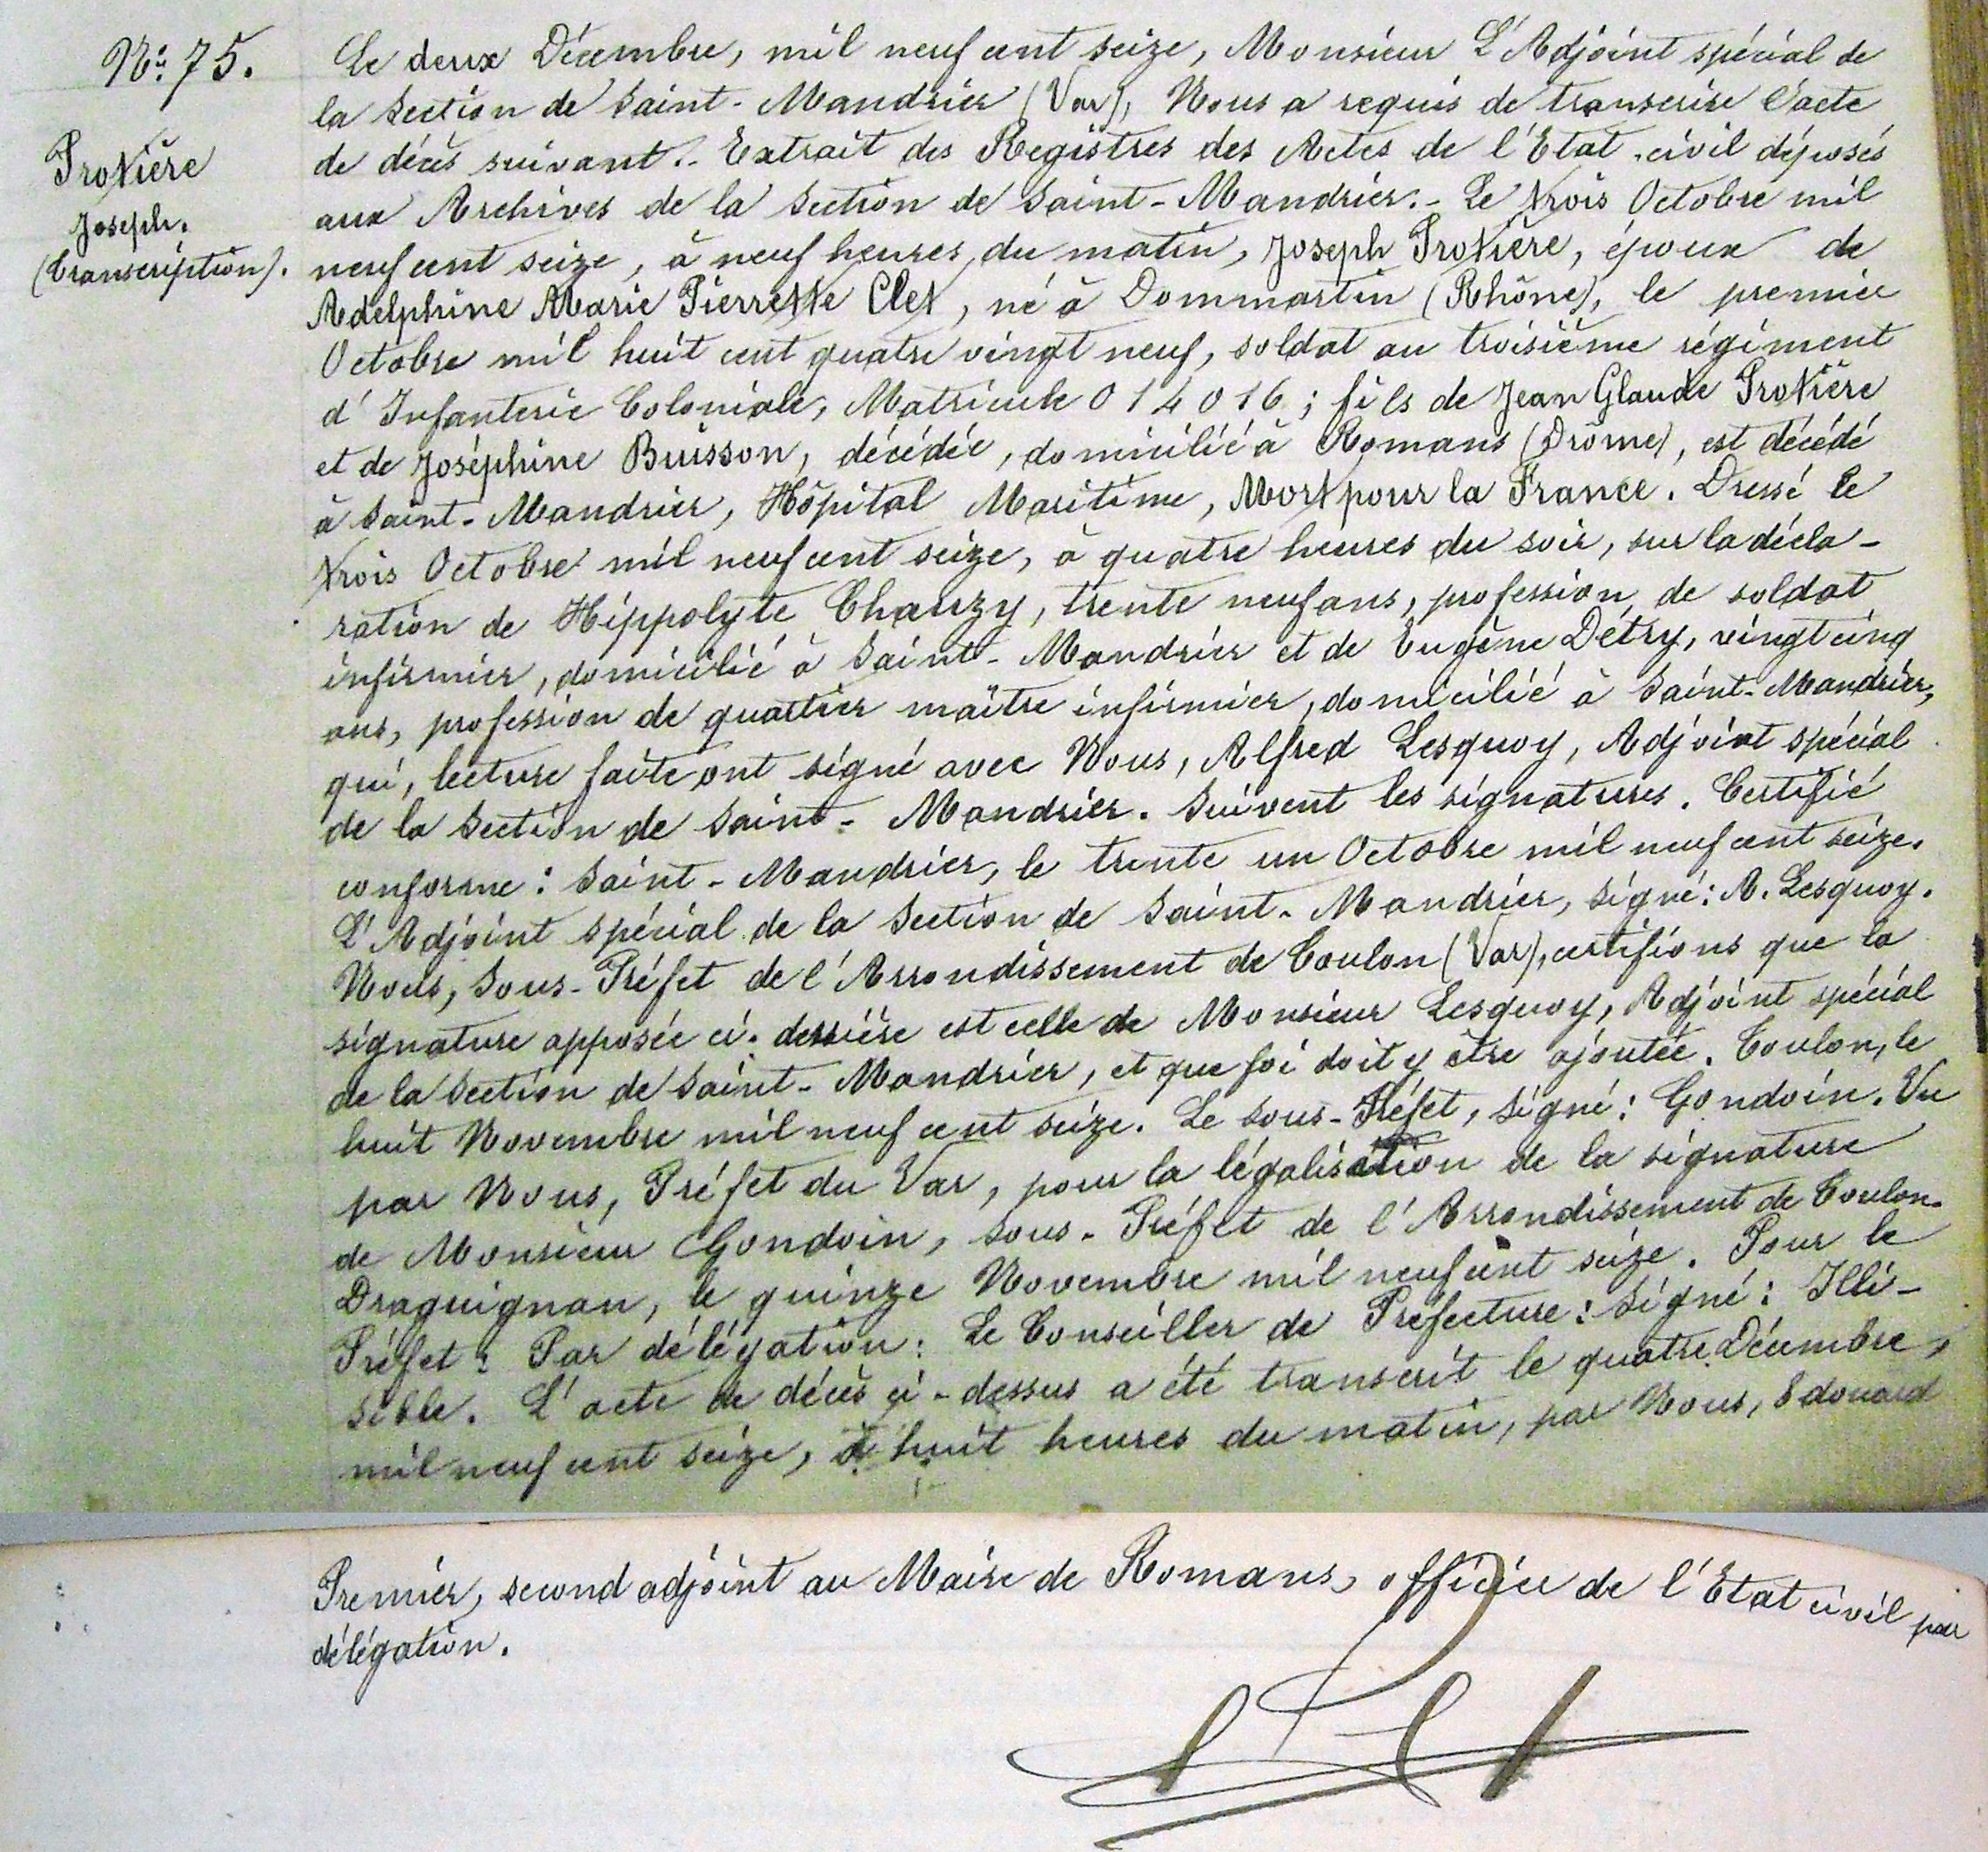 N°: 75.
Protière
Joseph.
(Transcription).
Le deux Décembre, mil neuf cent seize, Monsieur L'Adjoint spécial de
la Section de Saint-Mandrier (Var), Nous a requis de transcrire l'acte
de décès suivant.- Extrait des Registres des Actes de l'Etat-civil déposés
aux Archives de la Section de Saint-Mandrier.- Le trois Octobre mil
neuf cent seize, à neuf heures du matin, Joseph Protière, époux de
Adelphine Marie Pierrette Clet, né à Dommartin (Rhône), le premier
Octobre mil huit cent quatre vingt neuf, soldat au troisième régiment
d'Infanterie Coloniale, Matricule 014016; fils de Jean Glaude Protière
et de Joséphine Buisson, décédée, domicilié à Romans (Drôme), est décédé
à Saint-Mandrier, Hôpital Maritime, Mort pour la France. Dressé le
trois Octobre mil neuf cent seize, à quatre heures du soir, sur la décla-
ration de Hippolyte Chauzy, trente neuf ans, profession de soldat
infirmier, domicilié à Saint-Mandrier et de Eugène Détry, vingt cinq
ans, profession de quartier maître infirmier, domicilié à Saint-Mandrier,
qui, lecture faite ont signé avec Nous, Alfred Lesquoy, Adjoint spécial
de la Section de Saint-Mandrier. Suivent les signatures. Certifié
conforme: Saint-Mandrier, le trente un Octobre mil neuf cent seize.
L'Adjoint spécial de la Section de Saint-Mandrier, signé: A. Lesquoy.
Nous, Sous-Préfet de l'Arrondissement de Toulon (Var), certifions que la
signature apposée ci-derrière est celle de Monsieur Lesquoy, Adjoint spécial
de la Section de Saint-Mandrier, et que foi doit y être ajoutée. Toulon, le
huit Novembre mil neuf cent seize. Le Sous-Préfet, signé: Gondoin. Vu
par Nous, Préfet du Var, pour la légalisation de la signature
de Monsieur Gondoin, Sous-Préfet de l'Arrondissement de Toulon.
Draguignan, le quinze Novembre mil neuf cent seize. Pour le
Préfet: Par délégation: Le Conseiller de Préfecture: Signé: Illi-
sible. L'acte de décès ci-dessus a été transcrit le quatre Décembre,
mil neuf cent seize, à huit heures du matin, par Nous, Edouard
Premier, second adjoint au Maire de Romans, officier de l'Etat civil par
délégation.